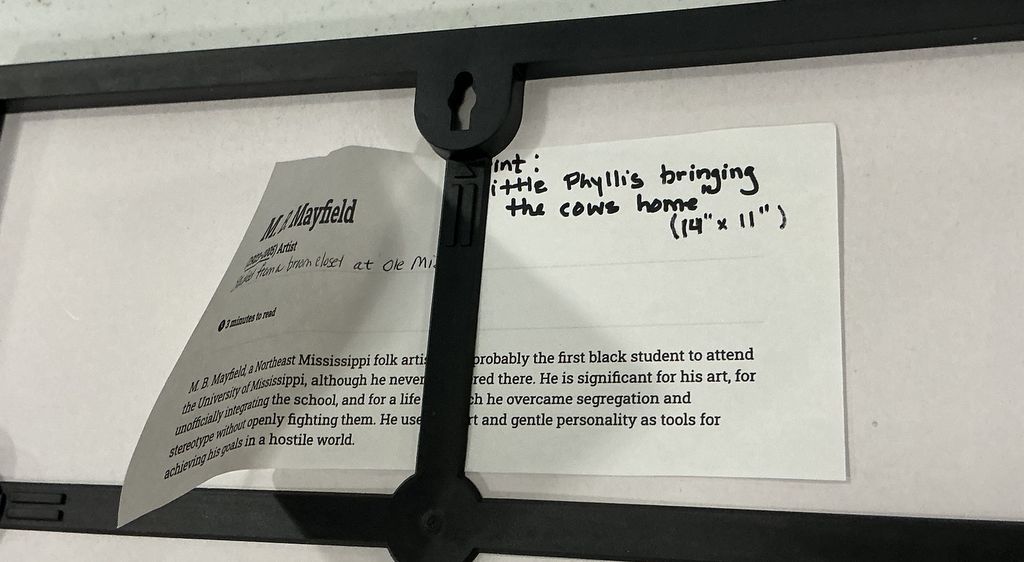 int:
ittle Phyllis bringing
the cows home
(14" x 11")
M. B. Mayfield
(1923-2005) Artist
from a broom closet at Ole Mi
3 minutes to read
M. B. Mayfield, a Northeast Mississippi folk arti probably the first black student to attend
the University of Mississippi, although he never red there. He is significant for his art, for
unofficially integrating the school, and for a life ch he overcame segregation and
stereotype without openly fighting them. He use rt and gentle personality as tools for
achieving his goals in a hostile world.